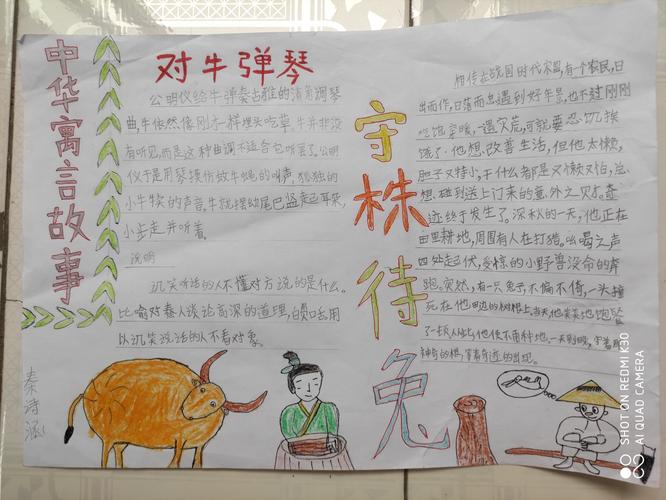 中华寓言故事
对牛弹琴
公明仪给牛弹奏古雅的清角调琴
曲,牛依然像刚才一样埋头吃草。牛并非没
有听见,而是这种曲调不适合它听罢了。公明
仪于是用琴模仿蚊牛蝇的叫声,孤独的
小牛犊的声音。牛就摆动尾巴竖起耳朵,
小步走并听着。
说明
讥笑听话的人不懂对方说的是什么。
比喻对蠢人谈论高深的道理,白费口舌用
以讥笑说话的人不看对象。
秦诗涵
守株待兔
相传在战国时代宋国,有个农民,日
出而作,日落而息遇到好年景,也不过刚刚
吃饱穿暖,一遇灾荒,可就要忍饥挨
饿了。他想改善生活,但他太懒,
胆子又特小,干什么都是又懒又怕,总
想碰到送上门来的意外之财。奇
迹终于发生了,深秋的一天,他正在
田里耕地,周围有人在打猎。吆喝之声
四处起伏,受惊的小野兽没命的奔
跑。突然,有一只兔子不偏不倚,一头撞
死在他田边的树根上。当天他美美地饱餐
了一顿。从此,他便不再种地。一天到晚,守着那
神奇的根,等着奇迹的出现。
SHOT ON REDMI K30
AI QUAD CAMERA